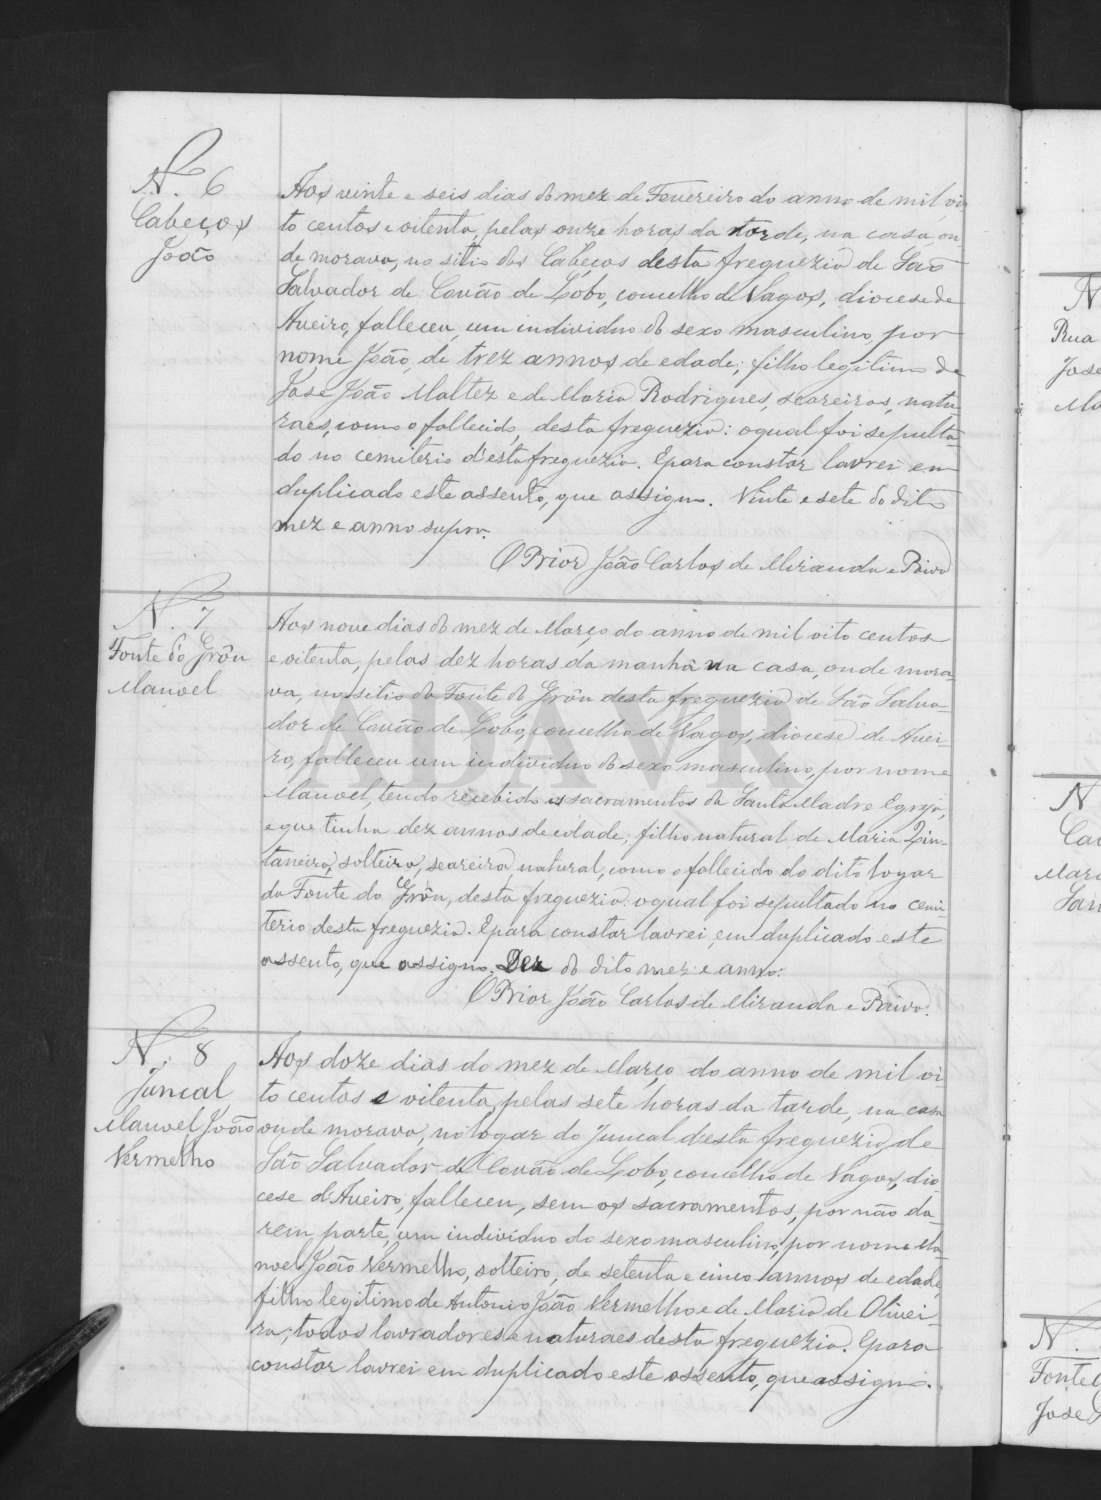 N. 6
Cabeços
João
Aos vinte e seis dias do mez de Fevereiro do anno de mil oi
to centos e oitenta, pelas onze horas da tarde, na casa, on-
de morava, no sitio dos Cabeços desta freguezia de São
Salvador de Covão de Lobo, concelho de Vagos, diocese de
Aveiro, falleceu um individuo do sexo masculino por
nome João, de trez annos de edade; filho legitimo de
José João Maltez e de Maria Rodrigues, seareiros, natu-
raes, como o fallecido, desta freguezia: o qual foi sepulta
do no cemiterio d'esta freguezia. E para constar lavrei em
duplicado este assento, que assigno. Vinte e sete do dito
mez e anno supra.
O Prior João Carlos de Miranda e Paiva
N. 7
Fonte do Grôu
Manoel
Aos nove dias do mez de Março do anno de mil oito centos
e oitenta, pelas dez horas da manhã na casa, onde mora-
va, no sitio da Fonte do Grôu desta freguezia de São Salva-
dor de Covão de Lobo, concelho de Vagos, diocese de Avei-
ro, falleceu um individuo do sexo masculino, por nome
Manoel, tendo recebido os sacramentos da Santa Madre Egreja,
e que tinha dez annos de edade; filho natural de Maria
taneira, solteira, seareira, natural, como o fallecido do dito logar
da Fonte do Grôu, desta freguezia: o qual foi sepultado no cemi-
terio desta freguezia. E para constar lavrei em duplicado este
assento, que assigno. Dez do dito mez e anno.
O Prior João Carlos de Miranda e Paiva.
N. 8
Juncal
Manoel João
Vermelho
Aos doze dias do mez de Março do anno de mil oi
to centos e oitenta, pelas sete horas da tarde, na casa
onde morava, no logar do Juncal desta freguezia de
São Salvador de Covão de Lobo, concelho de Vagos, dio-
cese d'Aveiro, falleceu, sem os sacramentos, por não da-
rem parte, um individuo do sexo masculino, por nome Ma
noel João Vermelho, solteiro, de setenta e cinco annos de edade,
filho legitimo de Antonio João Vermelho e de Maria de Olivei-
ra, todos lavradores e naturaes desta freguezia. E para
constar lavrei em duplicado este assento, que assigno.
ADAVR
N
Rua
José
N
N.
Fonte
José